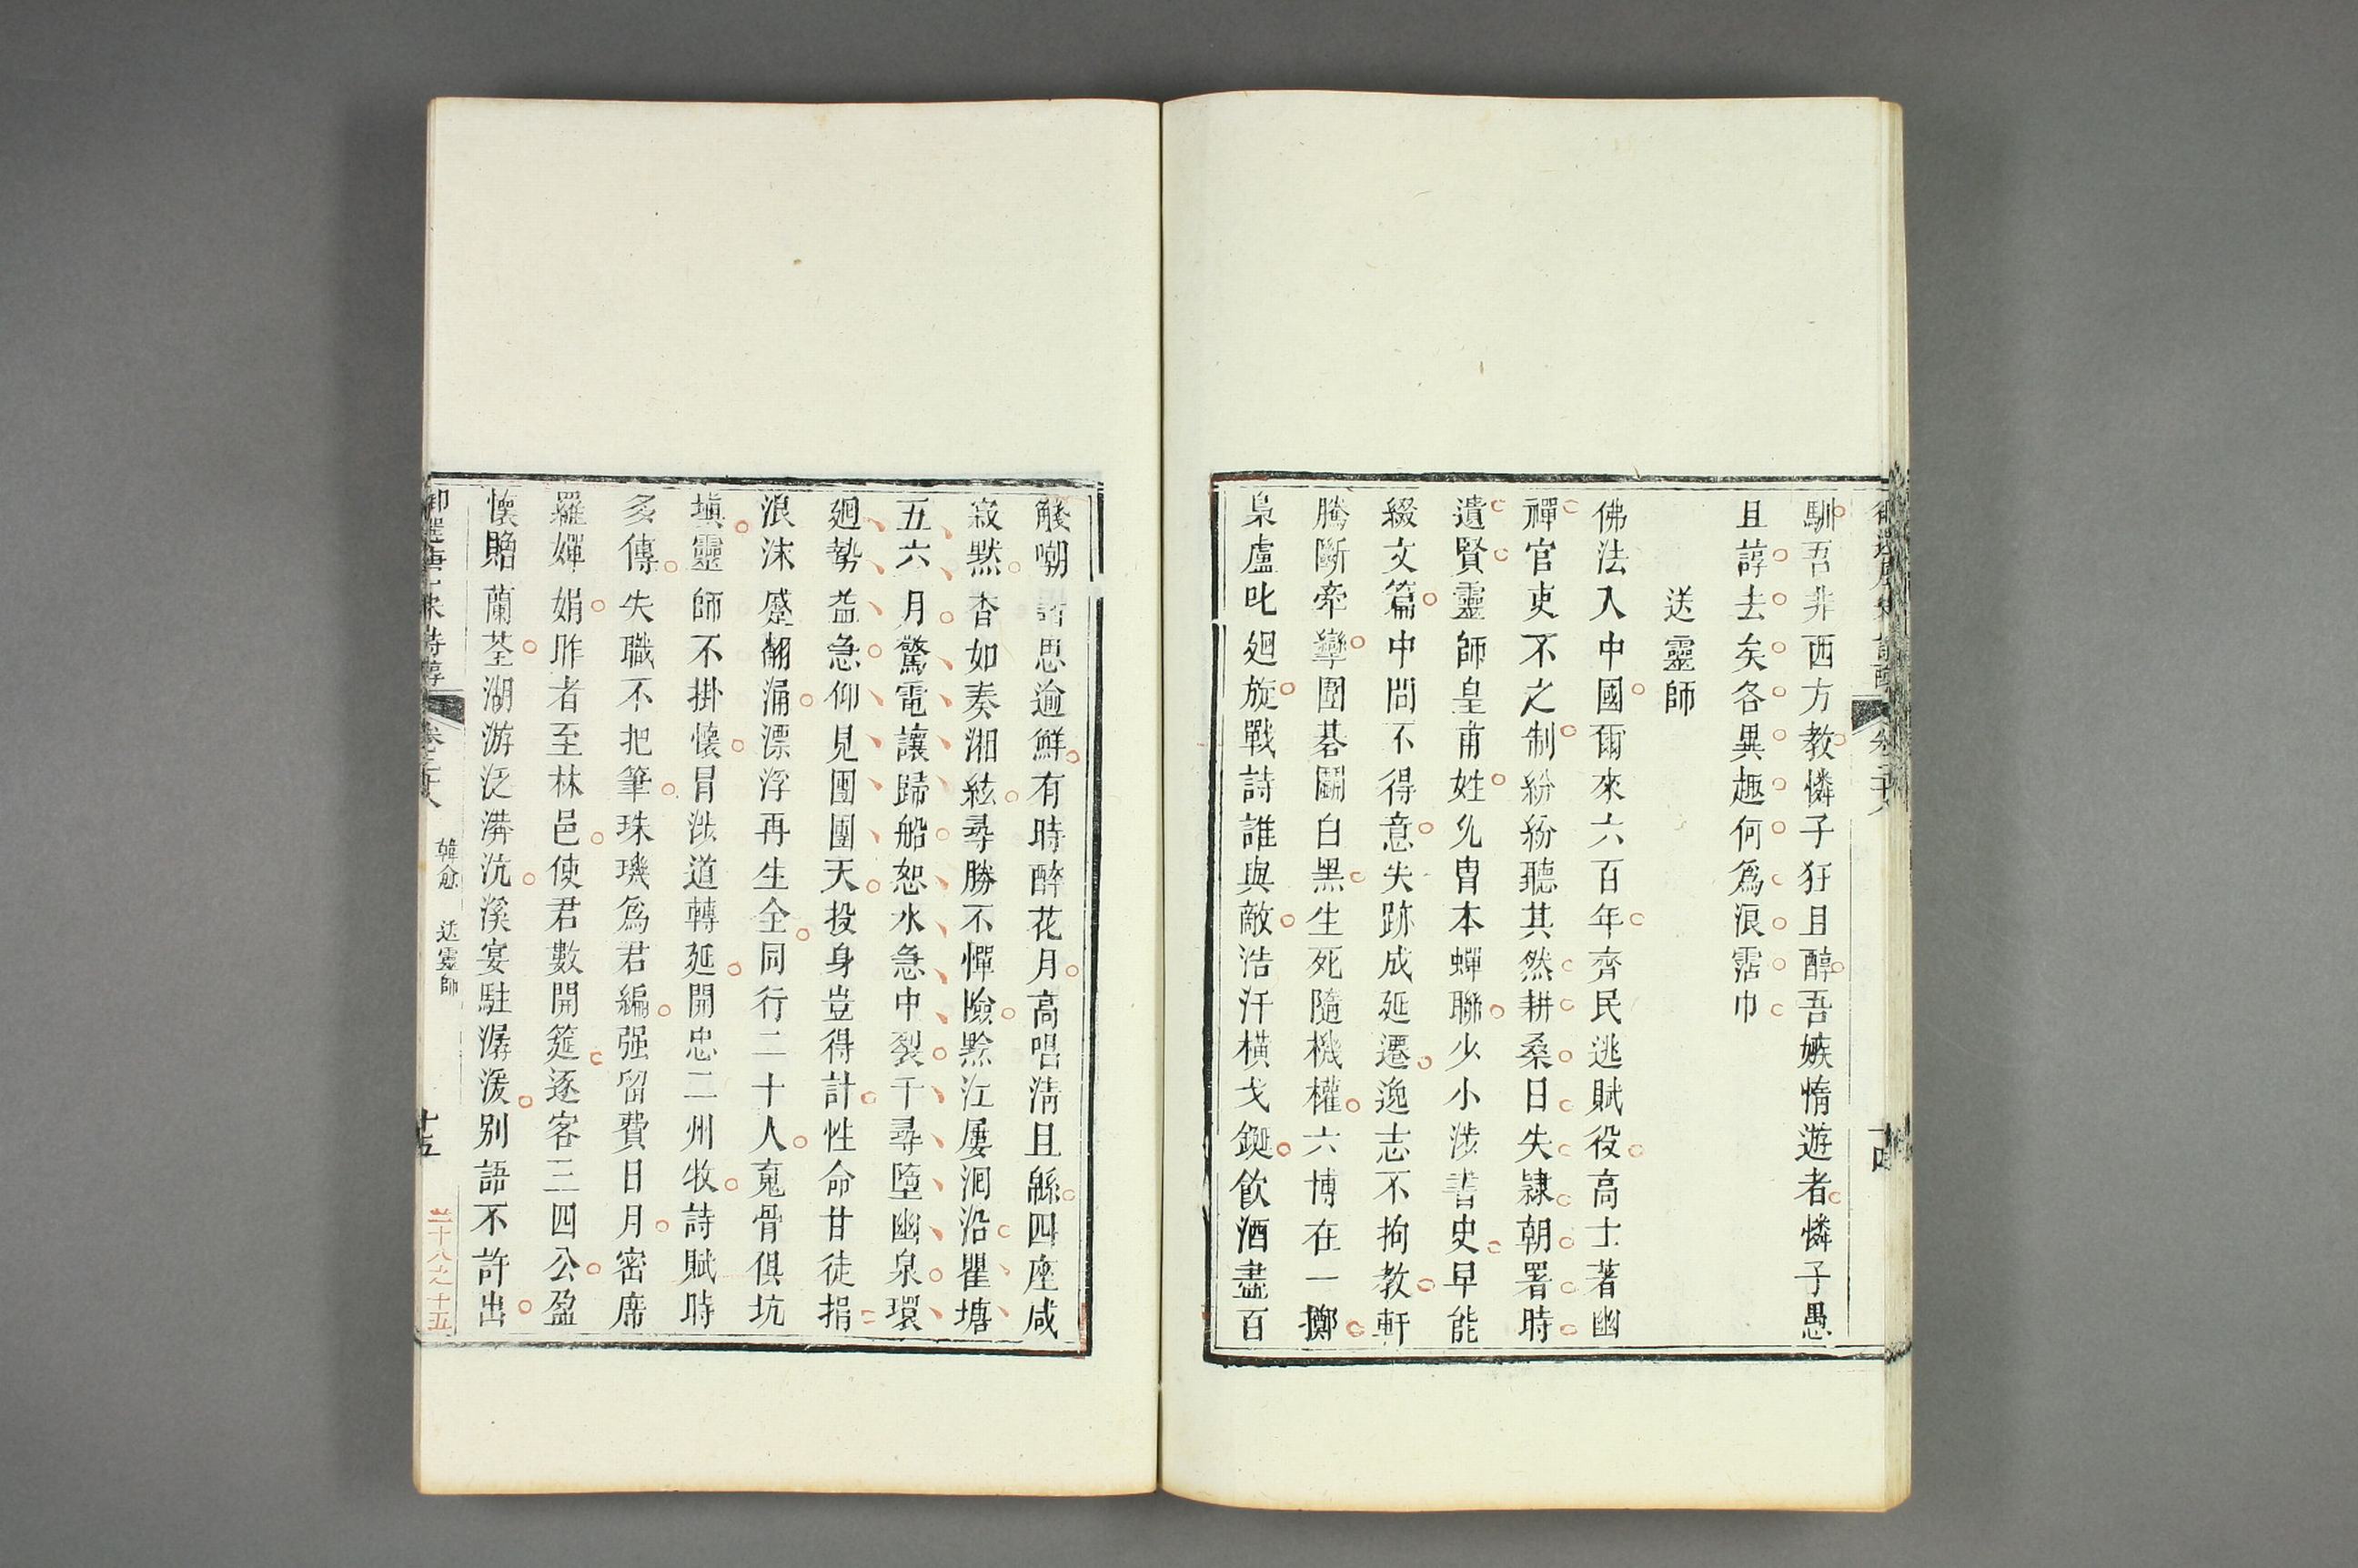 馴吾非西方教憐子狂且醇吾嫉惰遊者憐子愚
且諄去矣各異趣何爲浪霑巾
送靈師
佛法入中國爾來六百年齊民逃賦役高士著幽
禪官吏不之制紛紛聽其然耕桑日失隷朝署時
遺賢靈師皇甫姓㣧胄本蟬聯少小涉書史早能
綴文篇中間不得意失跡成延遷逸志不拘教軒
騰斷牽攣圍碁鬭白黑生死隨機權六博在一擲
梟盧叱廻旋戰詩誰與敵浩汗橫戈鋋飲酒盡百
醆嘲諧思逾鮮有時醉花月高唱淸且緜四座咸
寂默杳如奏湘絃尋勝不憚險黔江屢洄沿瞿塘
五六月驚電讓歸船怒水急中裂千尋墮幽泉環
廻勢益急仰見團團天投身豈得計性命甘徒捐
浪沫蹙翻涌漂浮再生全同行二十人䰟骨俱坑
塡靈師不掛懷冒涉道轉延開忠二州牧詩賦時
多傳失職不把筆珠璣爲君編强留費日月密席
羅嬋娟昨者至林邑使君數開筵逐客三四公盈
懷贈蘭荃湖游泛漭沆溪宴駐潺湲别語不許出
御選唐宋詩醇
卷二十八
韓愈 送靈師
十五
二十八之十五